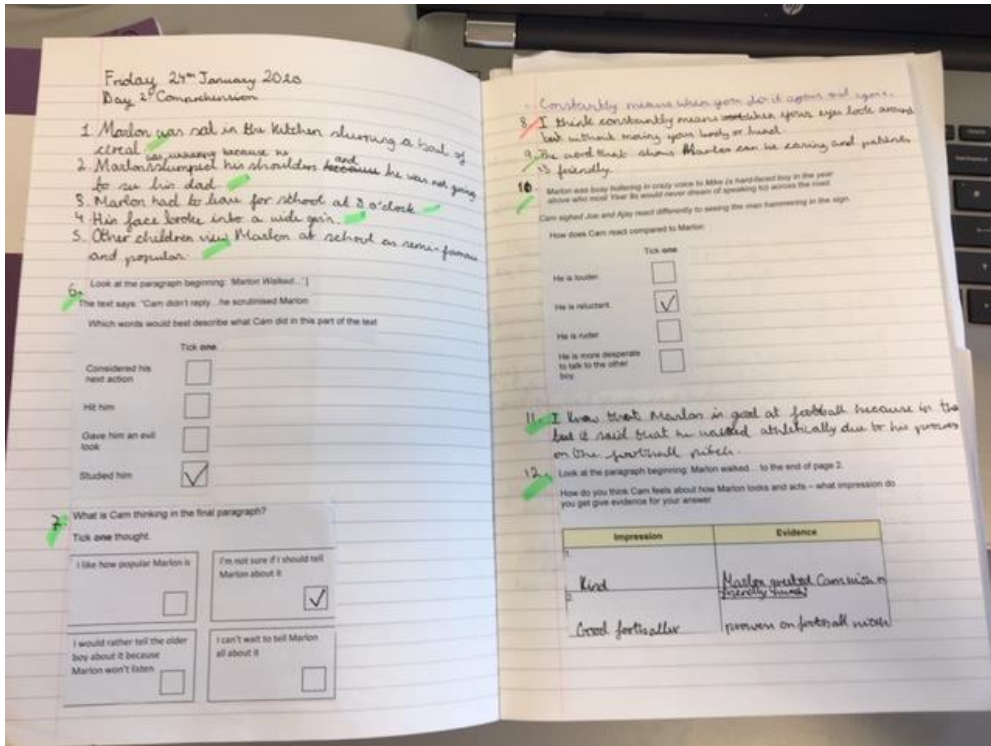 Friday 24th January 2020
Day 2 Comprehension
1 Marlon was sat in the kitchen slurring a bowl of
cereal.
was unhappy because he
2. Marlon slumped his shoulders because and he was not going
to see his dad
3. Marlon had to leave for school at 8 o'clock
4. His face broke into a wide grin.
5. Other children view Marlon at school as semi-famous
and popular.
6. Look at the paragraph beginning: 'Marlon Walked...'
The text says: "Cam didn't reply...he scrutinised Marlon
Which words would best describe what Cam did in this part of the text
Tick one
Considered his
next action
Hit him
Gave him an evil
look
Studied him
7. What is Cam thinking in the final paragraph?
Tick one thought.
I like how popular Marlon is
I'm not sure if I should tell
Marlon about it
I would rather tell the older
boy about it because
Marlon won't listen
I can't wait to tell Marlon
all about it
Constantly means when you do it again and again.
8. I think constantly means when your eyes look around
but without moving your body or head.
9. The word that shows Marlon can be caring and patient
is friendly.
10. Marlon was busy bantering in crazy voice to Mike (a hard-faced boy in the year
above who most Year 8s would never dream of speaking to) across the road.
Cam sighed Joe and Ajay react differently to seeing the man hammering in the sign.
How does Cam react compared to Marlon
Tick one
He is louder.
He is reluctant.
He is ruder
He is more desperate
to talk to the other
boy.
11. I know that Marlon is good at football because in the
text it said that he walked athletically due to his prowess
on the football pitch.
12. Look at the paragraph beginning: Marlon walked... to the end of page 2.
How do you think Cam feels about how Marlon looks and acts – what impression do
you get give evidence for your answer
Impression Evidence
1.
Kind Marlon greeted Cam with a
friendly
2.
Good footballer prowess on football pitch